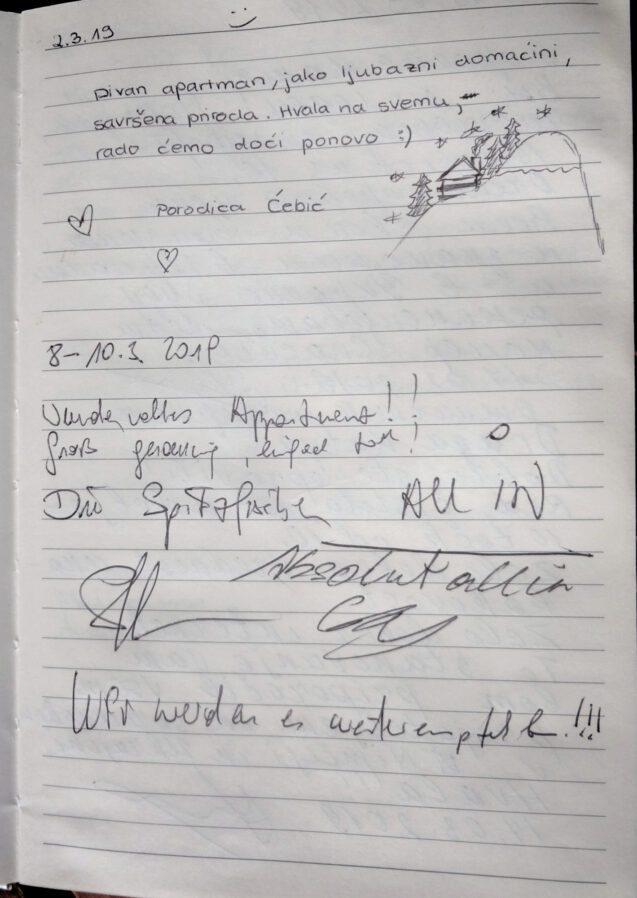 2.3.19
Divan apartman, jako ljubazni domaćini,
savršena priroda. Hvala na svemu,
rado ćemo doći ponovo :)
Porodica Ćebić
8-10.3. 2019
Wundervolles Appartment!!
Groß geräumig, einfach toll!
Die
ALL IN
Absolut all in
Wir werden es weiterempfehlen!!!